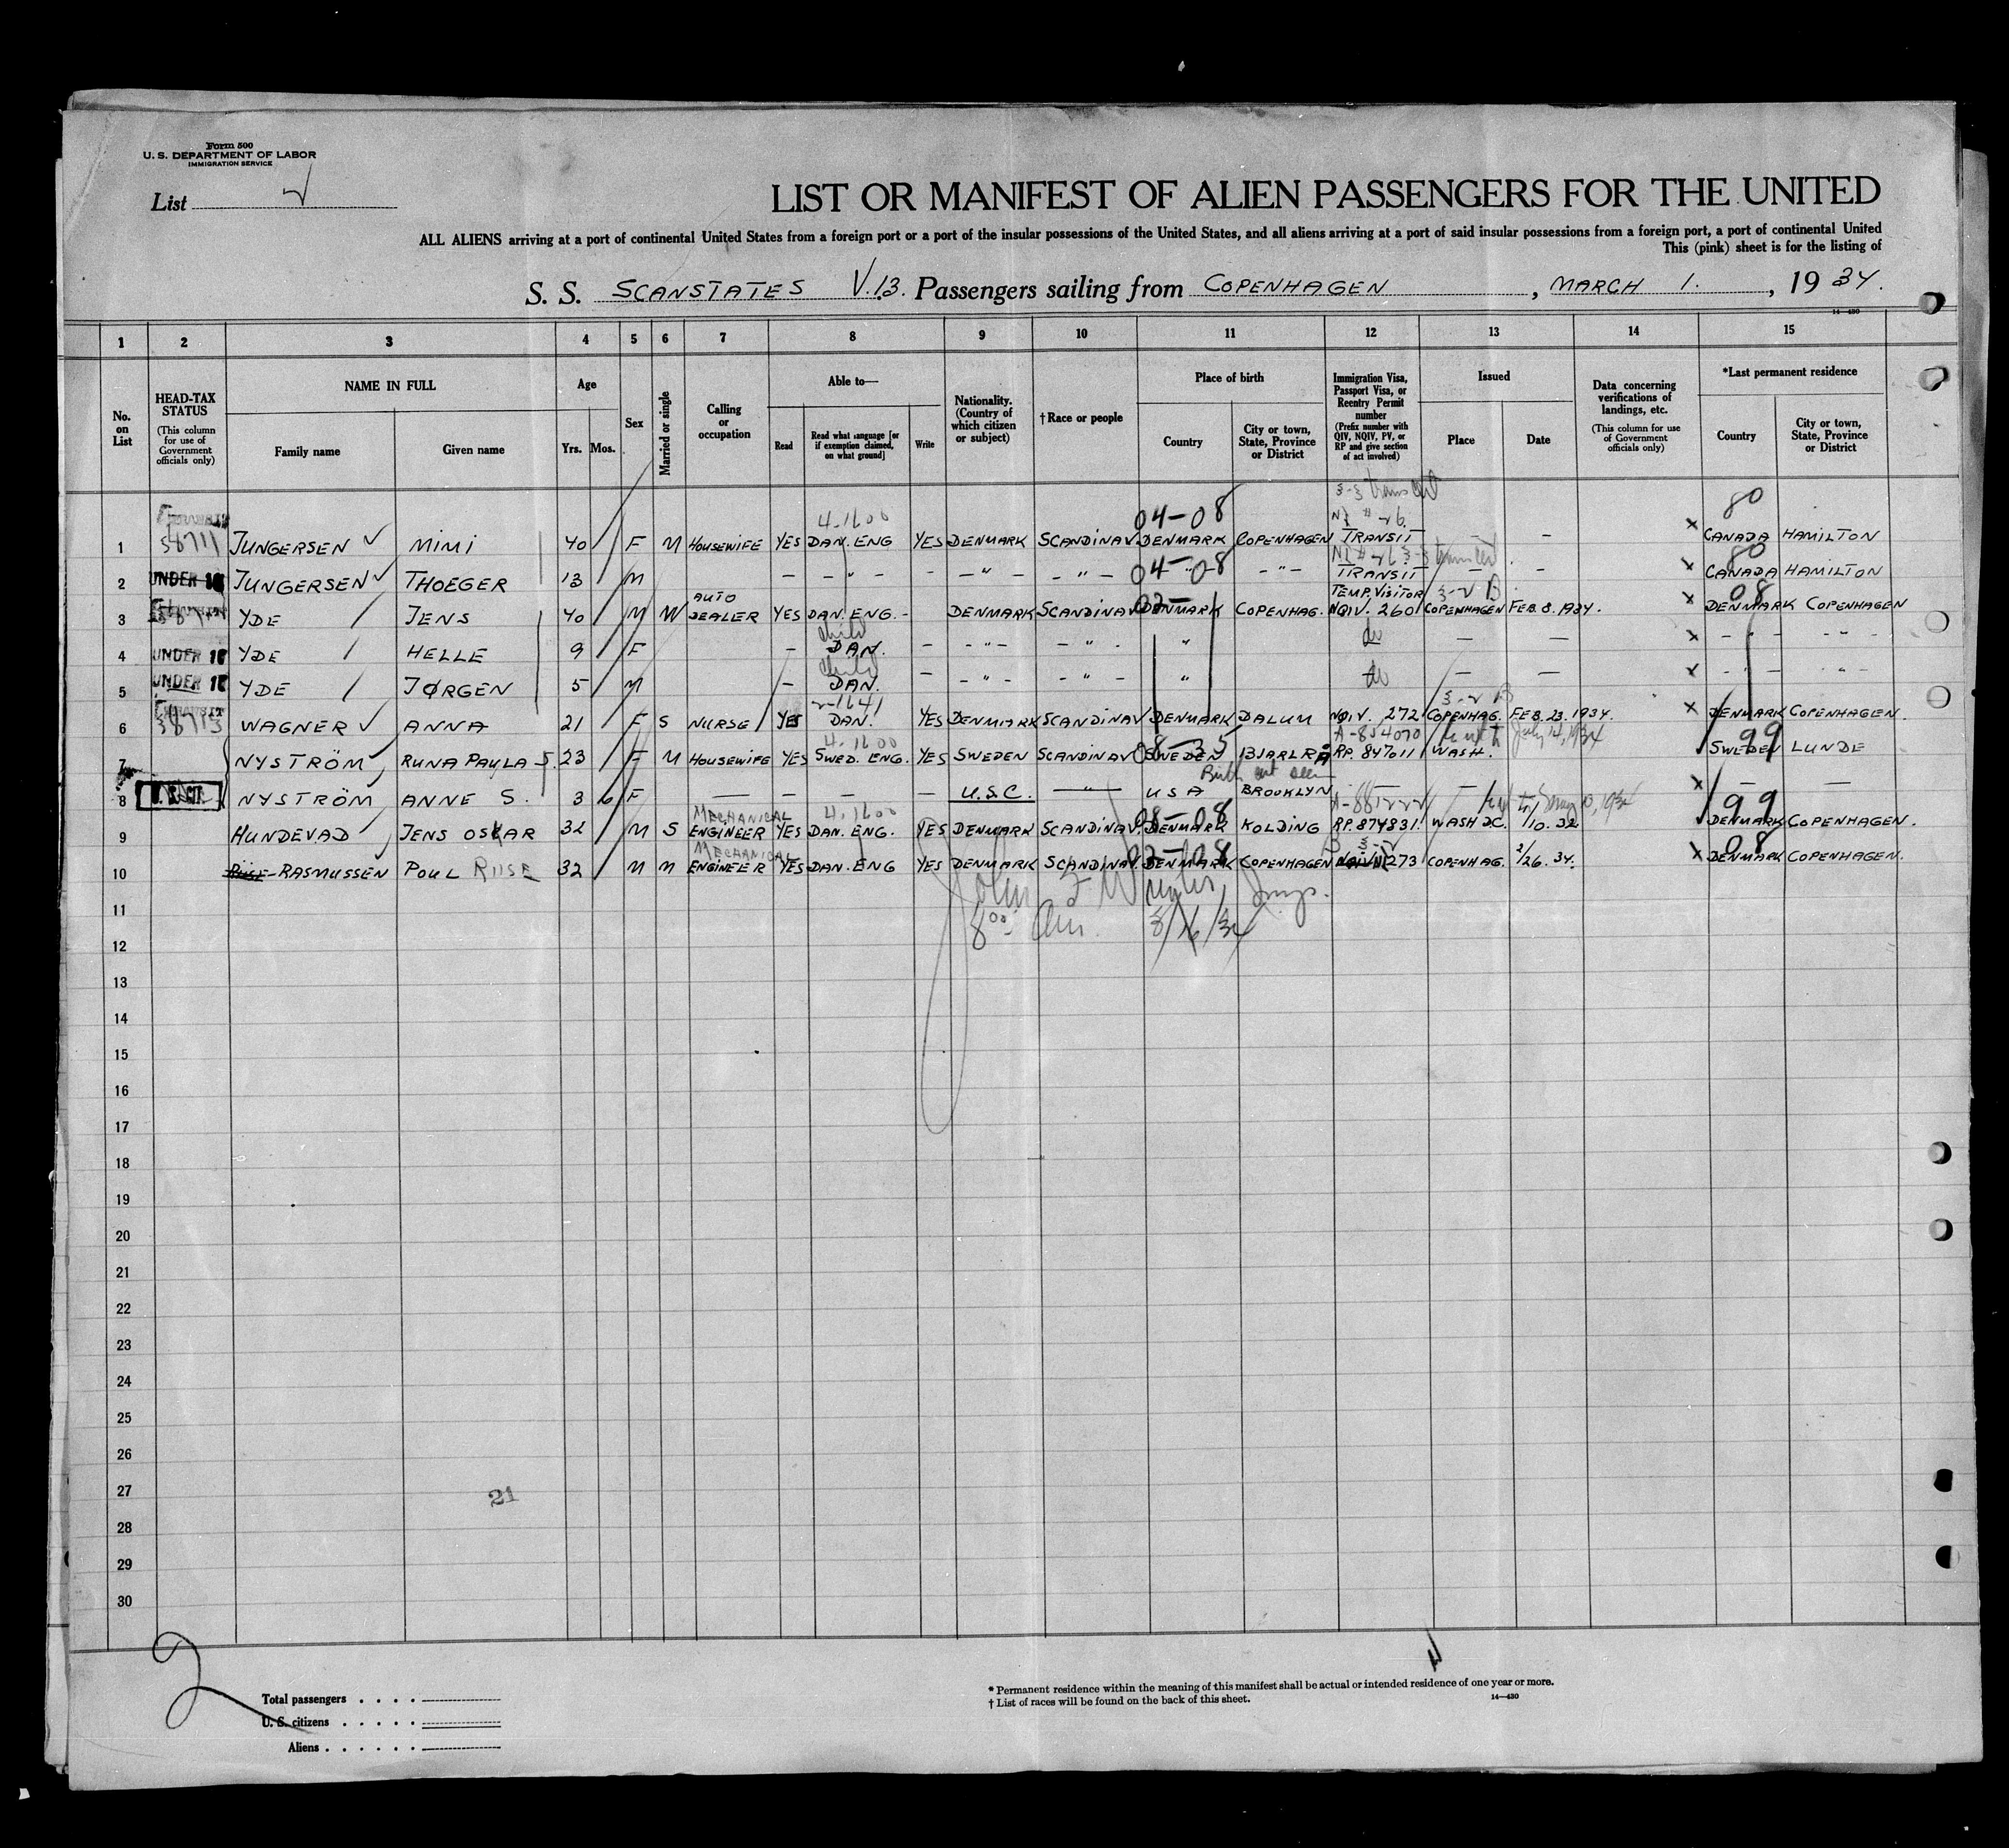 Form 500
U. S. DEPARTMENT OF LABOR
IMMIGRATION SERVICE
List
LIST OR MANIFEST OF ALIEN PASSENGERS FOR THE UNITED
ALL ALIENS arriving at a port of continental United States from a foreign port or a port of the insular possessions of the United States, and all aliens arriving at a port of said insular possessions from a foreign port, a port of continental United
This (pink) sheet is for the listing of
S. S. SCANSTATES V.13. Passengers sailing from COPENHAGEN, MARCH 1., 1934.
14—430
1 2 3 4 5 6 7 8 9 10 11 12 13 14 15
No. on List
HEAD-TAX STATUS
(This column for use of Government officials only)
NAME IN FULL
Family name Given name
Age
Yrs. Mos.
Sex
Married or single
Calling or occupation
Able to—
Read Read what language [or if exemption claimed, on what ground] Write
Nationality. (Country of which citizen or subject)
† Race or people
Place of birth
Country City or town, State, Province or District
Immigration Visa, Passport Visa, or Reentry Permit number
(Prefix number with QIV, NQIV, PV, or RP and give section of act involved)
Issued
Place Date
Data concerning verifications of landings, etc.
(This column for use of Government officials only)
*Last permanent residence
Country City or town, State, Province or District
3-3 transit
4-1600 04-08 80
1 58711 JUNGERSEN MIMI 40 F M HOUSEWIFE YES DAN. ENG YES DENMARK SCANDINAV. DENMARK COPENHAGEN TRANSIT — — x CANADA HAMILTON
04-08 80
2 UNDER 16 JUNGERSEN THOEGER 13 M — — " — — " — — " — — " — TRANSIT — — x CANADA HAMILTON
AUTO TEMP. VISITOR 3-2 B 08
3 YDE JENS 40 M W DEALER YES DAN. ENG. - DENMARK SCANDINAV. DENMARK COPENHAG. NQIV. 260 COPENHAGEN FEB. 8. 1934. x DENMARK COPENHAGEN
child
4 UNDER 16 YDE HELLE 9 F — DAN. — — " — — " — " do — — x — " — — " —
child
5 UNDER 16 YDE JØRGEN 5 M — DAN. — — " — — " — " do — — x — " — — " —
2-1641 3-2 B
6 58713 WAGNER ANNA 21 F S NURSE YES DAN. YES DENMARK SCANDINAV. DENMARK DALUM NQIV. 272 COPENHAG. FEB. 23. 1934. x DENMARK COPENHAGEN.
4-1600 08-35 A-854070 July 14, 1934 99
7 NYSTRÖM RUNA PAULA S. 23 F M HOUSEWIFE YES SWED. ENG. YES SWEDEN SCANDINAV SWEDEN BJARLRÅ RP. 847011 WASH. SWEDEN LUNDE
8 U.S. CIT. NYSTRÖM ANNE S. 3 6 F — — — — U.S.C. — " — USA BROOKLYN — — x — —
MECHANICAL 4-1600 08-08 99
9 HUNDEVAD JENS OSKAR 32 M S ENGINEER YES DAN. ENG. YES DENMARK SCANDINAV. DENMARK KOLDING RP. 874831. WASH DC. 1/10. 32 DENMARK COPENHAGEN.
MECHANICAL 08
10 RIISE-RASMUSSEN POUL RIISE 32 M M ENGINEER YES DAN. ENG YES DENMARK SCANDINAV. DENMARK COPENHAGEN NQIV 273 COPENHAG. 2/26. 34. x DENMARK COPENHAGEN.
11 John F Insp.
12 8 00 am. 3/16/34
13
14
15
16
17
18
19
20
21
22
23
24
25
26
27 21
28
29
30
2
Total passengers . . . .
U. S. citizens . . . . .
Aliens . . . . . .
* Permanent residence within the meaning of this manifest shall be actual or intended residence of one year or more.
† List of races will be found on the back of this sheet.
14—430